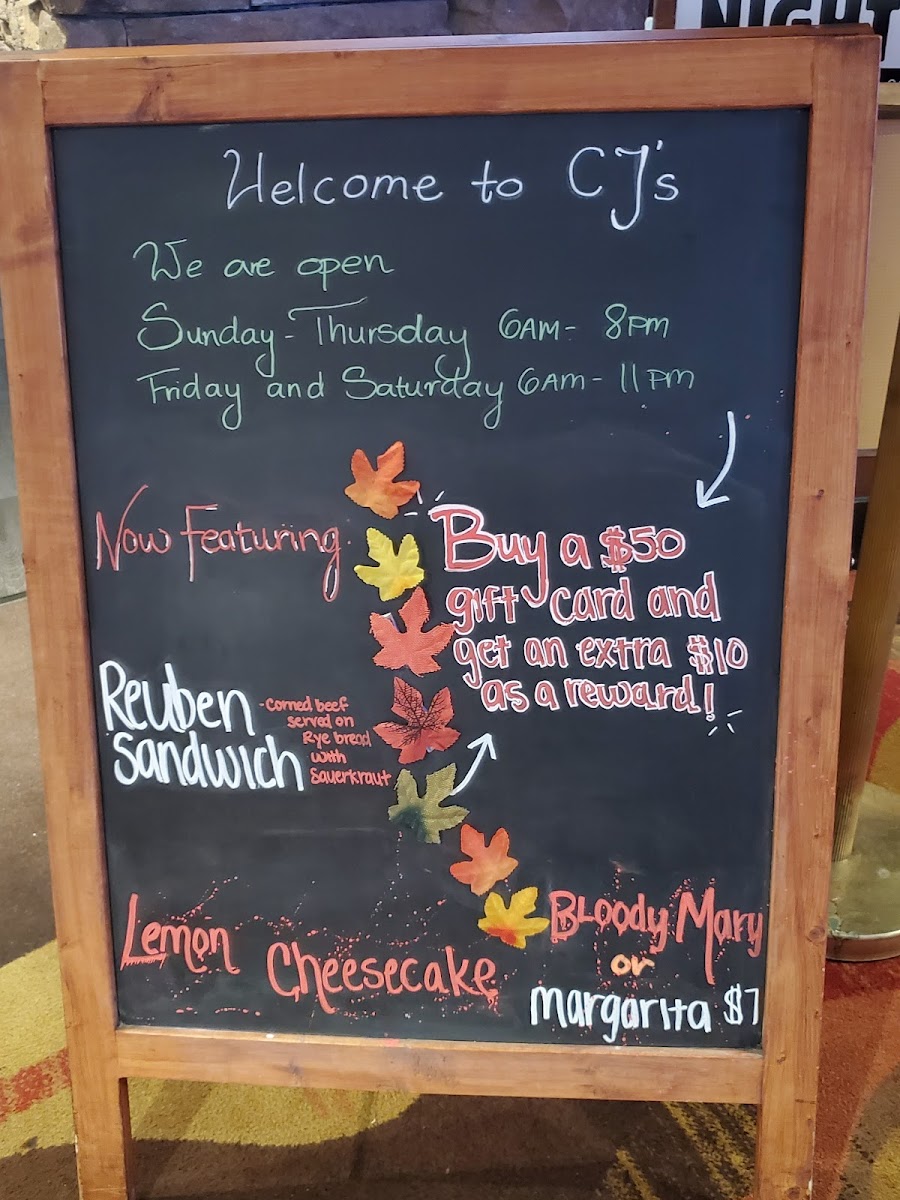 NIGHT
Welcome to CJ's
We are open
Sunday - Thursday 6AM - 8PM
Friday and Saturday 6AM - 11PM
Now Featuring
Buy a $50
gift card and
get an extra $10
as a reward!
Reuben
Sandwich
- corned beef
served on
Rye bread
with
Sauerkraut
Lemon
Cheesecake
Bloody Mary
or
margarita $7